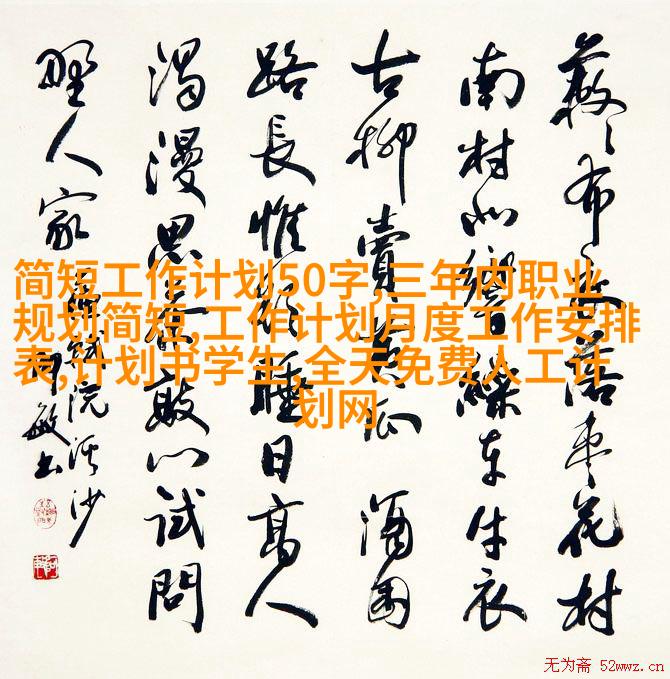 简短工作计划50字,三年内职业
规划简短,工作计划月度工作安排
表,计划书学生,全天免费人工计
划网
落枣花村
南村北響繰车牛衣
古柳賣黄瓜 酒困
路長惟欲睡日高人
渴漫思茶敲门試問
野人家
浣溪沙
敏书
无为斋 52wwz.cn